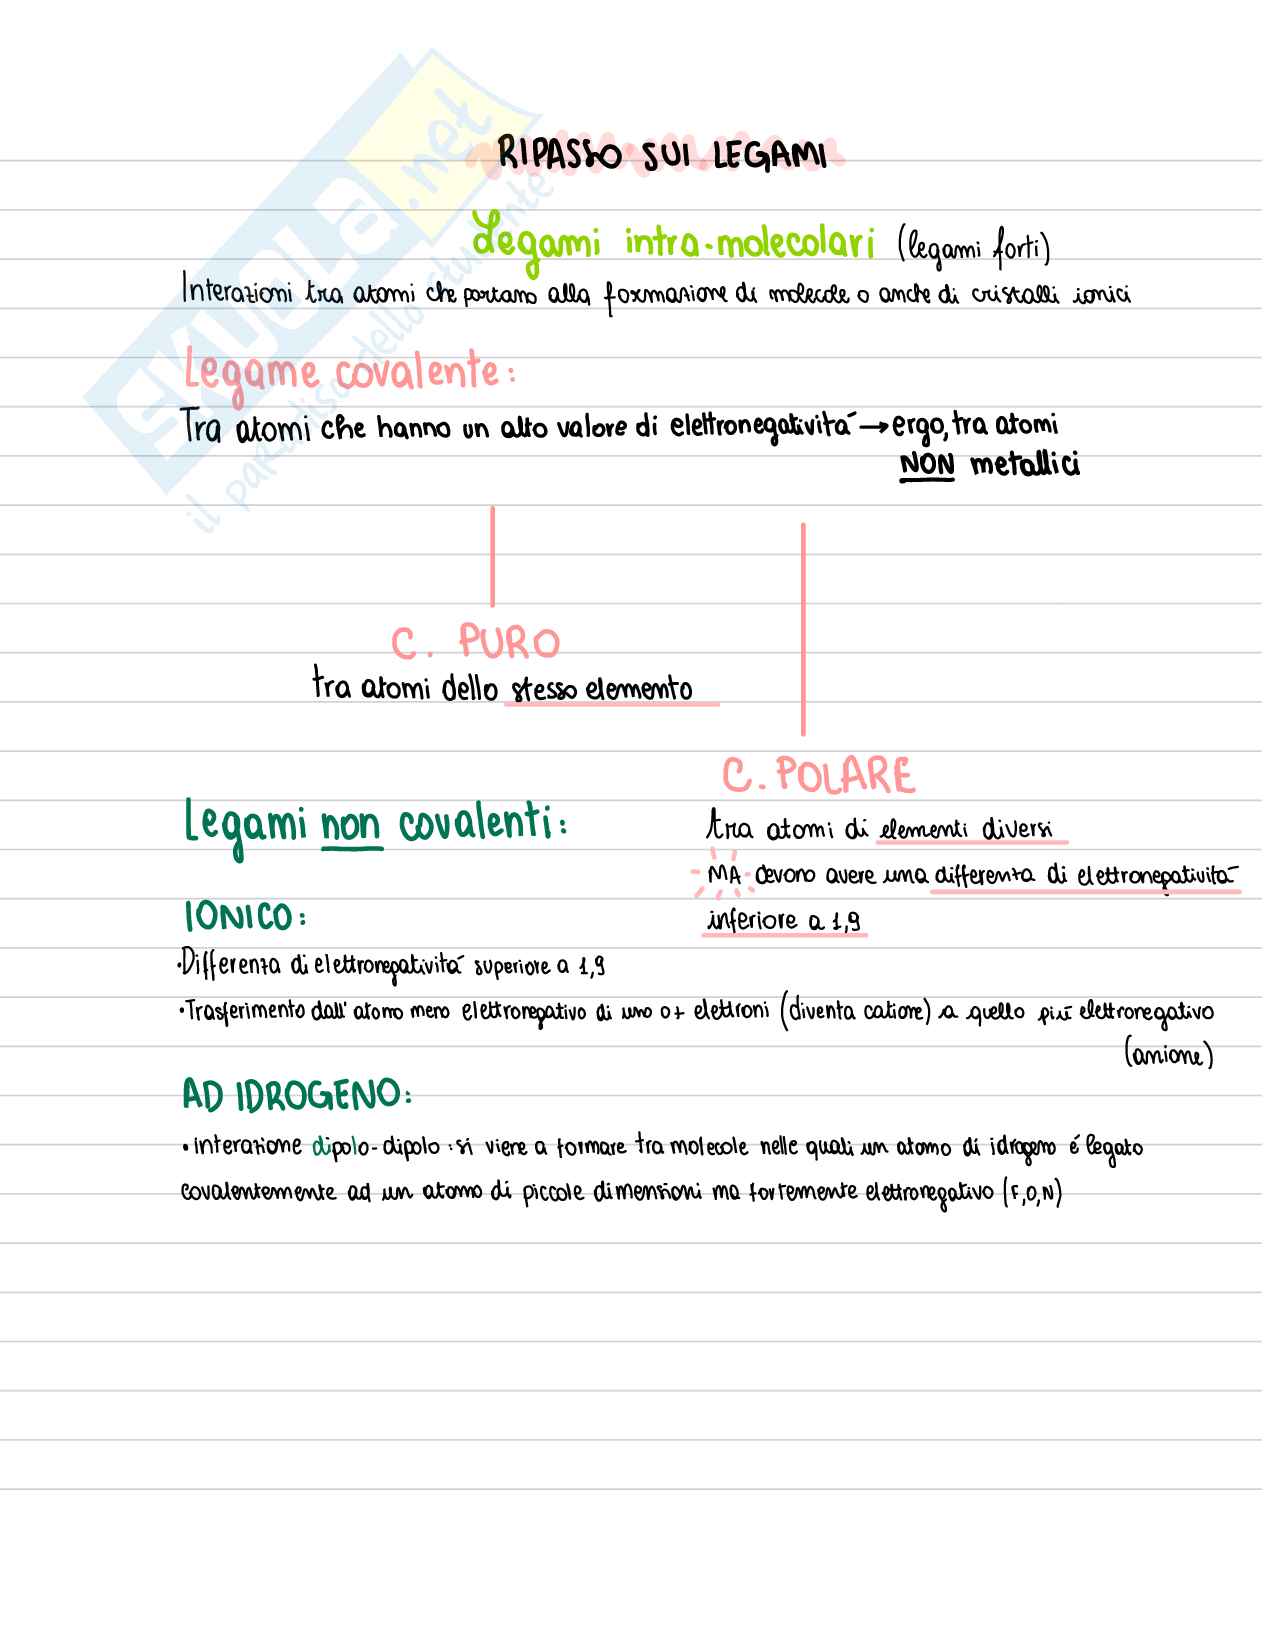 SKUOLA.net
il paradiso dello studente
RIPASSO SUI LEGAMI
Legami intra-molecolari (legami forti)
Interazioni tra atomi che portano alla formazione di molecole o anche di cristalli ionici
Legame covalente:
Tra atomi che hanno un alto valore di elettronegatività → ergo, tra atomi
NON metallici
C. PURO
tra atomi dello stesso elemento
C. POLARE
tra atomi di elementi diversi
MA devono avere una differenza di elettronegatività
inferiore a 1,9
Legami non covalenti:
IONICO:
•Differenza di elettronegatività superiore a 1,9
•Trasferimento dall' atomo meno elettronegativo di uno o + elettroni (diventa catione) a quello più elettronegativo
(anione)
AD IDROGENO:
• interazione dipolo-dipolo: si viene a formare tra molecole nelle quali un atomo di idrogeno é legato
covalentemente ad un atomo di piccole dimensioni ma fortemente elettronegativo (F,O,N)